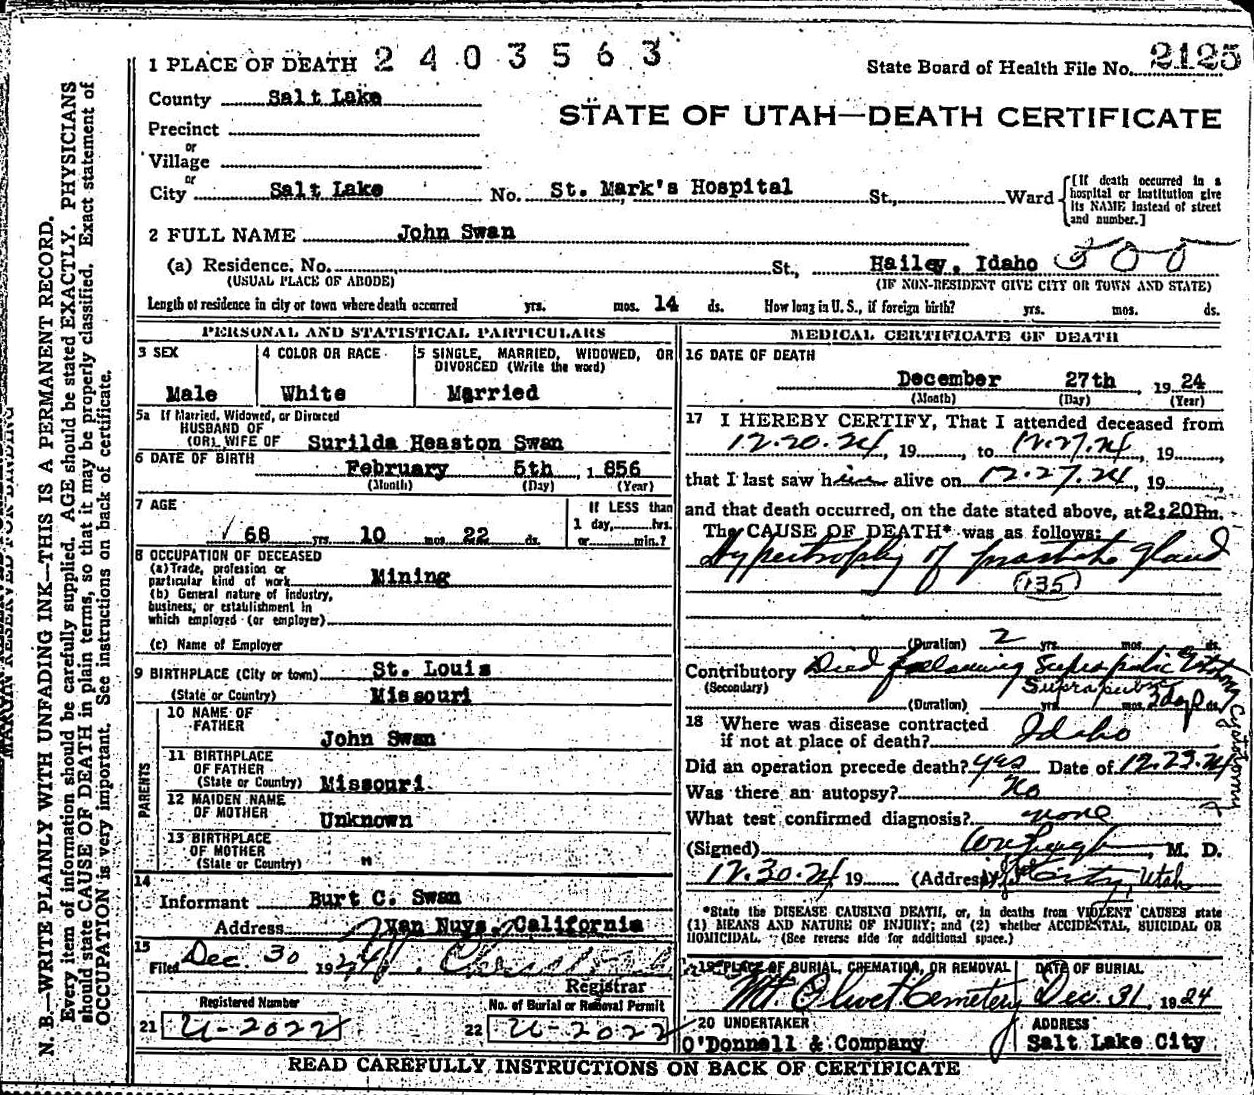 1 PLACE OF DEATH 2 4 0 3 5 6 3
State Board of Health File No. 2125
County Salt Lake
STATE OF UTAH—DEATH CERTIFICATE
Precinct
or
Village
or
City Salt Lake No. St. Mark's Hospital St., Ward
[If death occurred in a
hospital or institution give
its NAME instead of street
and number.]
2 FULL NAME John Swan
(a) Residence. No. St., Hailey, Idaho 500
(USUAL PLACE OF ABODE) (IF NON-RESIDENT GIVE CITY OR TOWN AND STATE)
Length of residence in city or town where death occurred yrs. mos. 14 ds. How long in U. S., if foreign birth? yrs. mos. ds.
PERSONAL AND STATISTICAL PARTICULARS
3 SEX
Male
4 COLOR OR RACE
White
5 SINGLE, MARRIED, WIDOWED, OR
DIVORCED (Write the word)
Married
5a If Married, Widowed, or Divorced
HUSBAND OF
(OR) WIFE OF Surilda Heaston Swan
6 DATE OF BIRTH
February 5th, 1856
(Month) (Day) (Year)
7 AGE
68 yrs. 10 mos. 22 ds.
If LESS than
1 day, hrs.
or min.?
8 OCCUPATION OF DECEASED
(a) Trade, profession or
particular kind of work Mining
(b) General nature of industry,
business, or establishment in
which employed (or employer)
(c) Name of Employer
9 BIRTHPLACE (City or town) St. Louis
(State or Country) Missouri
PARENTS
10 NAME OF
FATHER
John Swan
11 BIRTHPLACE
OF FATHER
(State or Country) Missouri.
12 MAIDEN NAME
OF MOTHER
Unknown
13 BIRTHPLACE
OF MOTHER
(State or Country) "
14
Informant Burt C. Swan
Address Van Nuys, California
15
Filed Dec. 30 1924
Registrar
Registered Number
21 U-2022
No. of Burial or Removal Permit
22 U-2022
MEDICAL CERTIFICATE OF DEATH
16 DATE OF DEATH
December 27th, 1924
(Month) (Day) (Year)
17 I HEREBY CERTIFY, That I attended deceased from
12.20.24, 19 , to 12.27.24, 19 ,
that I last saw him alive on 12.27.24, 19 ,
and that death occurred, on the date stated above, at 2:20 Pm.
The CAUSE OF DEATH* was as follows:
Hypertrophy of prostate gland
135
(Duration) 2 yrs. mos. ds.
Contributory Died following Suprapubic
Suprapubic Cystotomy
(Secondary)
(Duration) yrs. mos. 3 days ds.
18 Where was disease contracted
if not at place of death? Idaho
Did an operation precede death? yes Date of 12.23.24
Was there an autopsy? No
What test confirmed diagnosis? none
(Signed) , M. D.
12.30.24 19 (Address) City, Utah
*State the DISEASE CAUSING DEATH, or, in deaths from VIOLENT CAUSES state
(1) MEANS AND NATURE OF INJURY; and (2) whether ACCIDENTAL, SUICIDAL OR
HOMICIDAL. (See reverse side for additional space.)
19 PLACE OF BURIAL, CREMATION, OR REMOVAL
Mt. Olivet Cemetery
DATE OF BURIAL
Dec. 31, 1924
20 UNDERTAKER
O'Donnell & Company
ADDRESS
Salt Lake City
READ CAREFULLY INSTRUCTIONS ON BACK OF CERTIFICATE
MARGIN RESERVED FOR BINDING
N. B.—WRITE PLAINLY WITH UNFADING INK—THIS IS A PERMANENT RECORD.
Every item of information should be carefully supplied. AGE should be stated EXACTLY. PHYSICIANS
should state CAUSE OF DEATH in plain terms, so that it may be properly classified. Exact statement of
OCCUPATION is very important. See instructions on back of certificate.